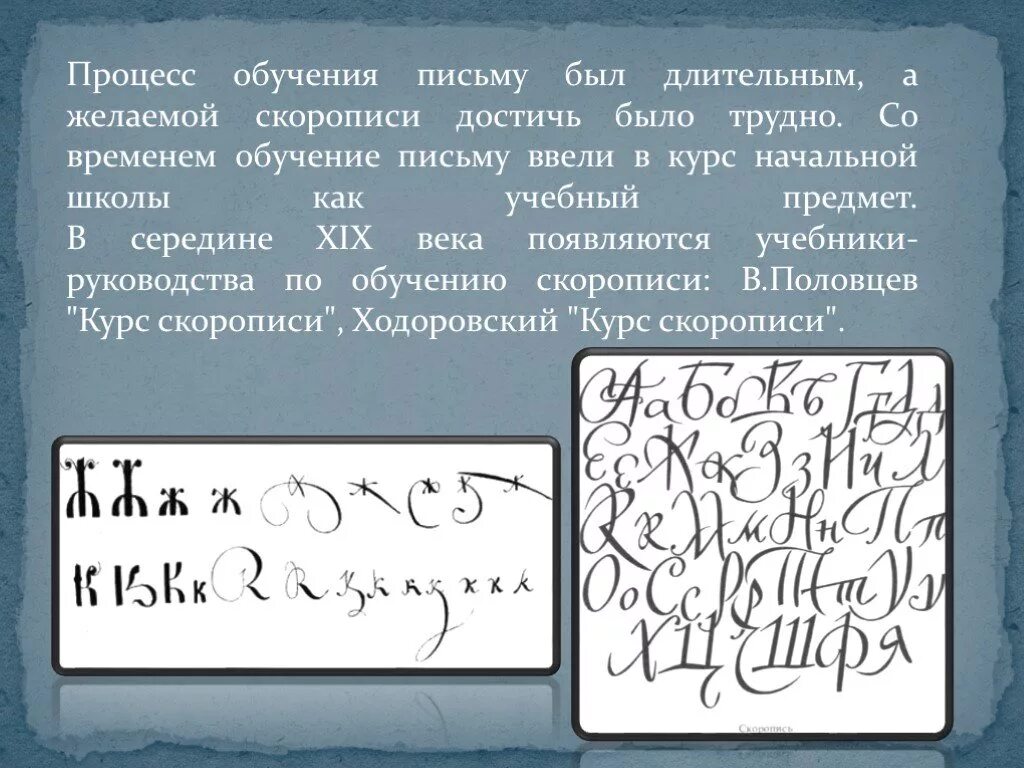 Процесс обучения письму был длительным, а
желаемой скорописи достичь было трудно. Со
временем обучение письму ввели в курс начальной
школы как учебный предмет.
В середине XIX века появляются учебники-
руководства по обучению скорописи: В.Половцев
"Курс скорописи", Ходоровский "Курс скорописи".
Ж Ж ж ж ж ж ж ж ж
К К К к К К к к к к к к к
Аа Бб Вв Гг Дд
Ее Жж Зз Ии Л
Кк Мм Нн Пп
Оо Сс Рр Тт Уу
Х Ц Ш Ф Я
Скоропись